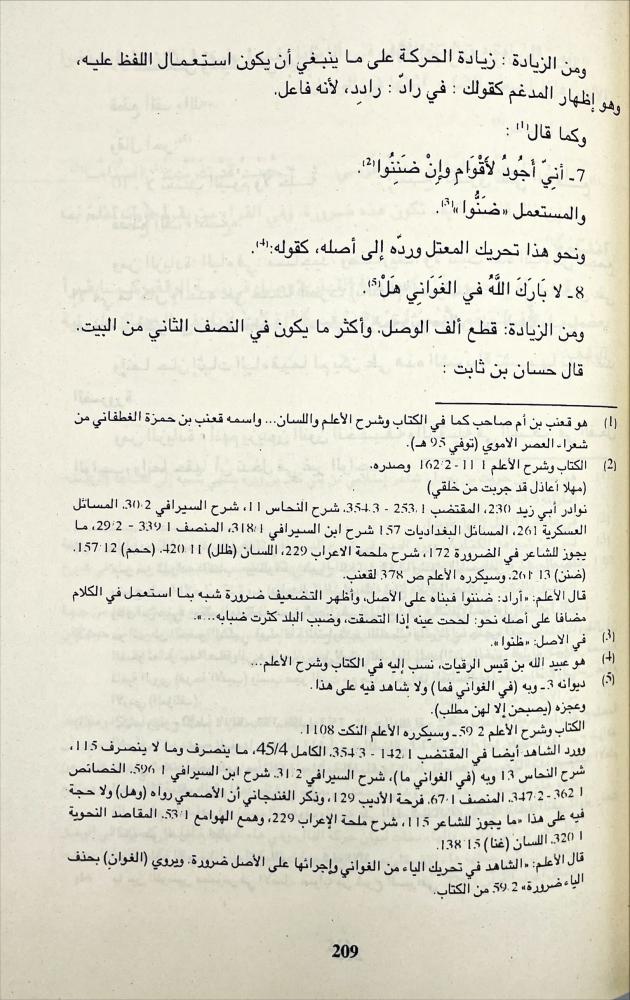 ومن الزيادة : زيادة الحركة على ما ينبغي أن يكون استعمال اللفظ عليه،
وهو إظهار المدغم كقولك : في رادّ : رادِد، لأنه فاعل.
وكما قال(1) :
7 ـ أنيّ أَجُودُ لأَقْوَامٍ وإنْ ضَنَنُوا(2).
والمستعمل «ضَنُّوا»(3).
ونحو هذا تحريك المعتل وردّه إلى أصله، كقوله:(4).
8 ـ لا بَارَكَ اللَّهُ في الغَوَانِي هَلْ(5).
ومن الزيادة: قطع ألف الوصل. وأكثر ما يكون في النصف الثاني من البيت.
قال حسان بن ثابت :
(1) هو قعنب بن أم صاحب كما في الكتاب وشرح الأعلم واللسان... واسمه قعنب بن حمزة الغطفاني من
شعراء العصر الأموي (توفي 95 هـ).
(2) الكتاب وشرح الأعلم 1 11 - 2 162 وصدره.
(مهلا أعاذل قد جربت من خلقي)
نوادر أبي زيد 230، المقتضب 1 253 - 3 354. شرح النحاس 11، شرح السيرافي 2 30. المسائل
العسكرية 261، المسائل البغداديات 157 شرح ابن السيرافي 1/318، المنصف 1 339 - 2 29، ما
يجوز للشاعر في الضرورة 172، شرح ملحمة الاعراب 229، اللسان (ظلل) 11 420. (حمم) 12 157.
(ضنن) 13 261. وسيكرره الأعلم ص 378 لقعنب.
قال الأعلم: «أراد: ضننوا فبناه على الأصل، وأظهر التضعيف ضرورة شبه بما استعمل في الكلام
مضافا على أصله نحو: لححت عينه إذا التصقت، وضبب البلد كثرت ضبابه...».
(3) في الاصل: «ظنوا».
(4) هو عبيد الله بن قيس الرقيات، نسب إليه في الكتاب وشرح الأعلم...
(5) ديوانه 3 ـ وبه (في الغواني فما) ولا شاهد فيه على هذا.
وعجزه (يصبحن إلا لهن مطلب).
الكتاب وشرح الأعلم 2 59 ـ وسيكرره الأعلم النكت 1108.
وورد الشاهد أيضا في المقتضب 1 142 - 3 354. الكامل 45/4، ما ينصرف وما لا ينصرف 115،
شرح النحاس 13 وبه (في الغواني ما)، شرح السيرافي 2 31. شرح ابن السيرافي 1 596. الخصائص
1 362 - 2 347. المنصف 1 67. فرحة الأديب 129، وذكر الغندجاني أن الأصمعي رواه (وهل) ولا حجة
فيه على هذا «ما يجوز للشاعر 115، شرح ملحة الإعراب 229، وهمع الهوامع 1 53. المقاصد النحوية
1 320. اللسان (غنا) 15 138.
قال الأعلم: «الشاهد في تحريك الياء من الغواني وإجرائها على الأصل ضرورة. ويروي (الغوان) بحذف
الياء ضرورة» 2 59 من الكتاب.
209